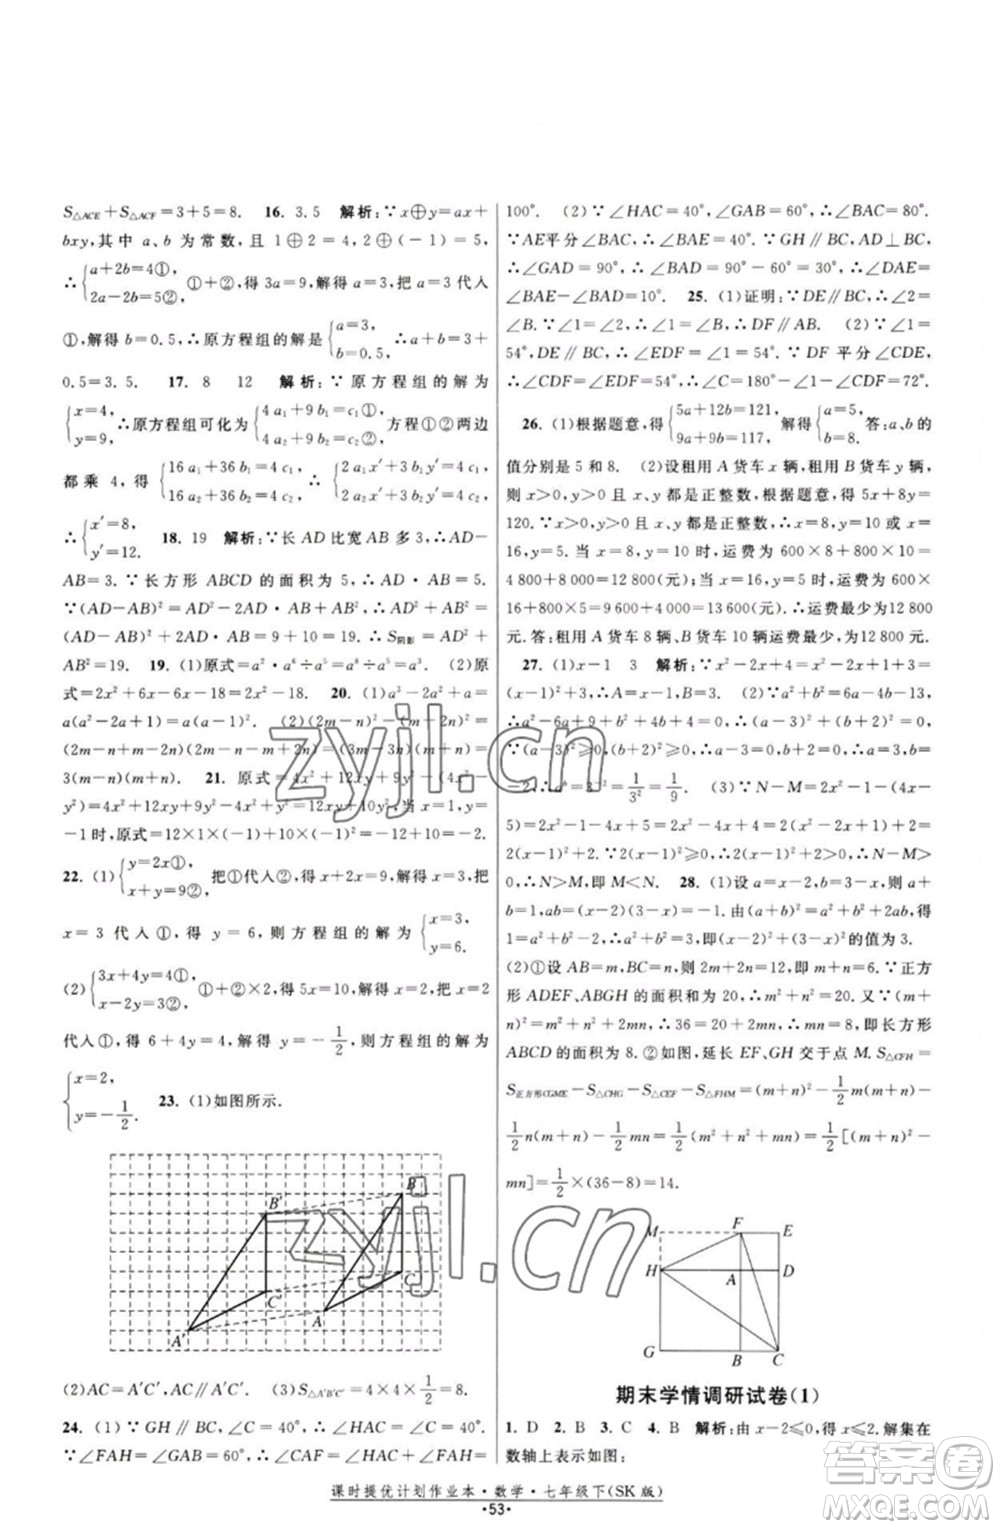 S△ACE+S△ACF=3+5=8. 16. 3.5 解析:∵x⊕y=ax+
bxy,其中 a、b 为常数,且 1⊕2=4,2⊕(-1)=5,
∴{a+2b=4①, 2a-2b=5② ①+②,得 3a=9,解得 a=3.把 a=3 代入
①,解得 b=0.5,∴原方程组的解为{a=3, b=0.5. ∴a+b=3+
0.5=3.5. 17. 8 12 解析:∵原方程组的解为
{x=4, y=9. ∴原方程组可化为{4a₁+9b₁=c₁① 4a₂+9b₂=c₂② 方程组①②两边
都乘 4,得{16a₁+36b₁=4c₁ 16a₂+36b₂=4c₂ ∴{2a₁x′+3b₁y′=4c₁ 2a₂x′+3b₂y′=4c₂
∴{x′=8, y′=12. 18. 19 解析:∵长 AD 比宽 AB 多 3,∴AD-
AB=3.∵长方形 ABCD 的面积为 5,∴AD·AB=5.
∵(AD-AB)²=AD²-2AD·AB+AB²,∴AD²+AB²=
(AD-AB)²+2AD·AB=9+10=19.∴S阴影=AD²+
AB²=19. 19. (1)原式=a²·a⁶÷a⁵=a⁸÷a⁵=a³. (2)原
式=2x²+x³-x³-2x²-18=-18. 20. (1)a³-2a²+a=
a(a²-2a+1)=a(a-1)². (2)(2m-n)²-(m-2n)²=
(2m-n+m-2n)(2m-n-m+2n)=(3m-3n)(m+n)=
3(m-n)(m+n). 21. 原式=4x²+12xy+9y²-(4x²-
y²)=4x²+12xy+9y²-4x²+y²=12xy+10y².当 x=1,y=
-1时,原式=12×1×(-1)+10×(-1)²=-12+10=-2.
22. (1){y=2x①, x+y=9②, 把①代入②,得 x+2x=9,解得 x=3,把
x=3 代入①,得 y=6,则方程组的解为{x=3, y=6.
(2){3x+4y=4①, x-2y=3②, ①+②×2,得 5x=10,解得 x=2,把 x=2
代入①,得 6+4y=4,解得 y=-1/2,则方程组的解为
{x=2, y=-1/2. 23. (1)如图所示.
B′ B
C′ C
A′ A
(2)AC=A′C′,AC∥A′C′. (3)S△A′B′C′=4×4×1/2=8.
24. (1)∵GH∥BC,∠C=40°,∴∠HAC=∠C=40°,
∵∠FAH=∠GAB=60°,∴∠CAF=∠HAC+∠FAH=
100°. (2)∵∠HAC=40°,∠GAB=60°,∴∠BAC=80°.
∵AE平分∠BAC,∴∠BAE=40°.∵GH∥BC,AD⊥BC,
∴∠GAD=90°,∴∠BAD=90°-60°=30°,∴∠DAE=
∠BAE-∠BAD=10°. 25. (1)证明:∵DE∥BC,∴∠2=
∠B.∵∠1=∠2,∴∠1=∠B,∴DF∥AB. (2)∵∠1=
54°,DE∥BC,∴∠EDF=∠1=54°.∵DF 平分∠CDE,
∴∠CDF=∠EDF=54°,∴∠C=180°-∠1-∠CDF=72°.
26. (1)根据题意,得{5a+12b=121, 9a+9b=117, 解得{a=5, b=8. 答:a、b的
值分别是 5 和 8. (2)设租用 A 货车 x 辆,租用 B 货车 y 辆,
则 x>0,y>0,且 x、y 都是正整数,根据题意,得 5x+8y=
120.∵x>0,y>0,且 x、y 都是正整数,∴x=8,y=10或 x=
16,y=5.当 x=8,y=10 时,运费为 600×8+800×10=
4 800+8 000=12 800(元);当 x=16,y=5 时,运费为 600×
16+800×5=13 600(元).∵13 600>12 800,∴运费最少为 12 800
元.答:租用 A 货车 8 辆、B 货车 10 辆运费最少,为 12 800元.
27. (1)x-1 3 解析:∵x²-2x+4=x²-2x+1+3=
28. (1)设 a=x-2,b=3-x,则 a+
b=1,ab=(x-2)(3-x)=-1.由(a+b)²=a²+2ab+b²,得
(2)①设 AB=m,AD=n,则 2m+2n=12,∴m+n=6.∵正方
形 ADEF、ABGH 的面积和为 20,∴m²+n²=20.又∵(m+
n)²=m²+n²+2mn,∴36=20+2mn,∴mn=8,即长方形
ABCD 的面积为 8.②如图,延长 EF、GH 交于点 M.S△CFH=
S正方形CGME-S△CHG-S△CEF-S△FHM=(m+n)²-1/2m(m+n)-
1/2n(m+n)-1/2mn=1/2(m²+n²+mn)=1/2[(m+n)²-
mn]=1/2×(36-8)=14.
M F E
H A D
G B C
期末学情调研试卷(1)
1. D 2. B 3. C 4. B 解析:由x-2≤0,得 x≤2.解集在
数轴上表示如图:
课时提优计划作业本·数学·七年级下(SK版)
·53·
zyjl.cn
zyjl.cn
答案圈
MXQE.COM